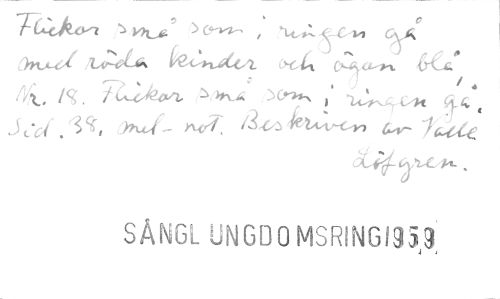 Flickor små som i ringen gå
med röda kinder och ögon blå,
Nr. 18. Flickor små som i ringen gå.
Sid. 38, mel- not. Beskriven av Valle
Löfgren.
SÅNGL UNGDOMSRING1959